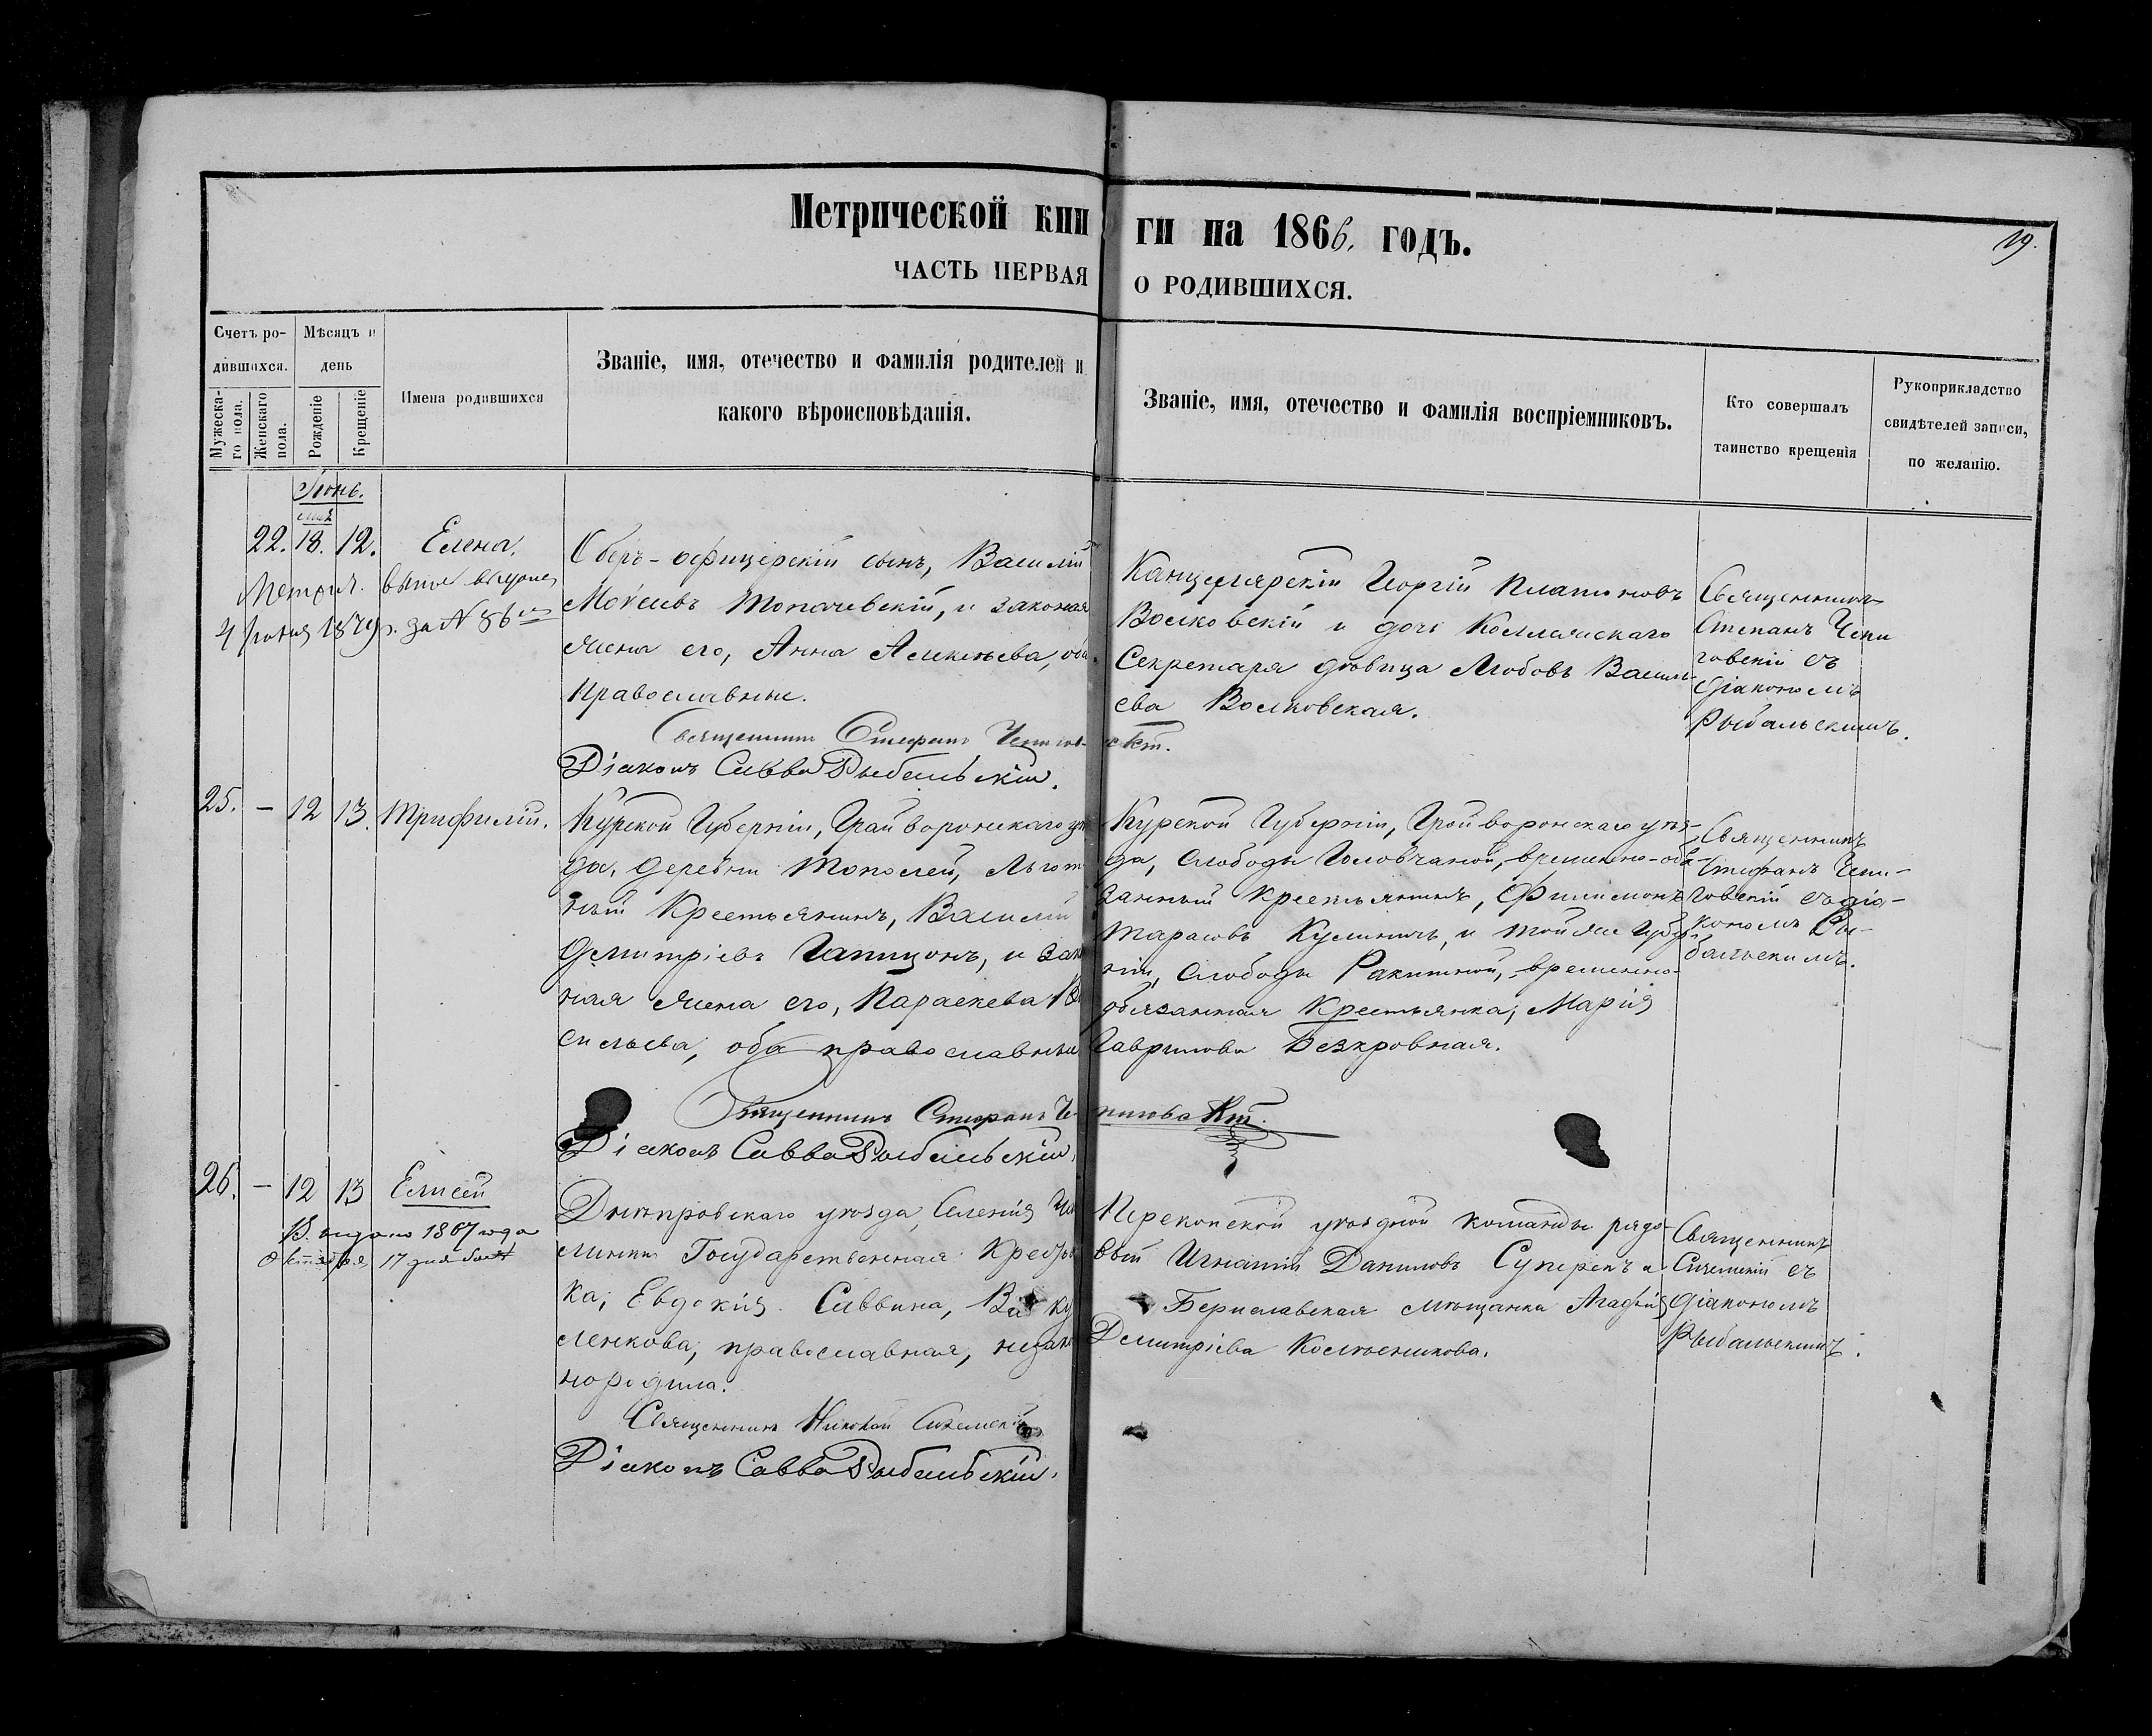 Метрической кни
ги на 1866. годъ.
19.
ЧАСТЬ ПЕРВАЯ
О РОДИВШИХСЯ.
Счетъ ро-
дившихся.
Мужеска-
го пола.
Женскаго
пола.
Мѣсяцъ и
день
Рожденіе
Крещеніе
Имена родившихся
Званіе, имя, отечество и фамилія родителей и
какого вѣроисповѣданія.
Званіе, имя, отечество и фамилія воспріемниковъ.
Кто совершалъ
таинство крещенія
Рукоприкладство
свидѣтелей записи,
по желанію.
Іюнь.
мая
22. 18. 12. Елена.
4 1879 г. за № 86
Оберъ-офицерскій сынъ, Василій
Моѵсеевъ Топачевскій, и законная
жена его, Анна Алексѣева, оба
Православные.
Священникъ Стефанъ
Діаконъ Савва Рыбальскій.
Канцелярскій Георгій Платоновъ
Волковскій и дочь Коллежскаго
Секретаря дѣвица Любовь Василь-
ева Волковская.
Священникъ
Степанъ Чепи
говскій съ
Діакономъ
Рыбальскимъ.
25. — 12 13. Трифилій.
Курской Губерніи, Грайворонскаго уѣз
да, деревни Тополей, Льгот
ный Крестьянинъ, Василій
Димитріевъ Гапицонъ, и зако
ная жена его, Параскева Ва
сильева, оба православные
Священникъ Стефанъ Че-
Діаконъ Савва Рыбальскій.
Курской Губерніи, Грайворонскаго уѣз-
да, Слободы Головчаной, временно-обя-
занный Крестьянинъ, Филимонъ
Тарасовъ Кулиничъ, и той же Губер-
ніи, Слободы Ракитной, временно-
обязанная Крестьянка, Марія
Гаврилова Безкровная.
Священникъ
Стефанъ Чепи-
говскій съ діа-
кономъ Ры-
бальскимъ.
26. — 12 13 Елисей
Выдано 1867 года
октября 17 дня
Днѣпровскаго уѣзда, Селенія Ча
линки Государственная Крестьян
ка, Евдокія Саввина,
ленкова, православная, незакон
нородила.
Священникъ Николай
Діаконъ Савва Рыбальскій.
Перекопской уѣздной команды рядо-
вый Игнатій Даниловъ Суперекъ и
Бериславская мѣщанка Агафія
Димитріева Колѣсникова.
Священникъ
съ
Діакономъ
Рыбальскимъ.